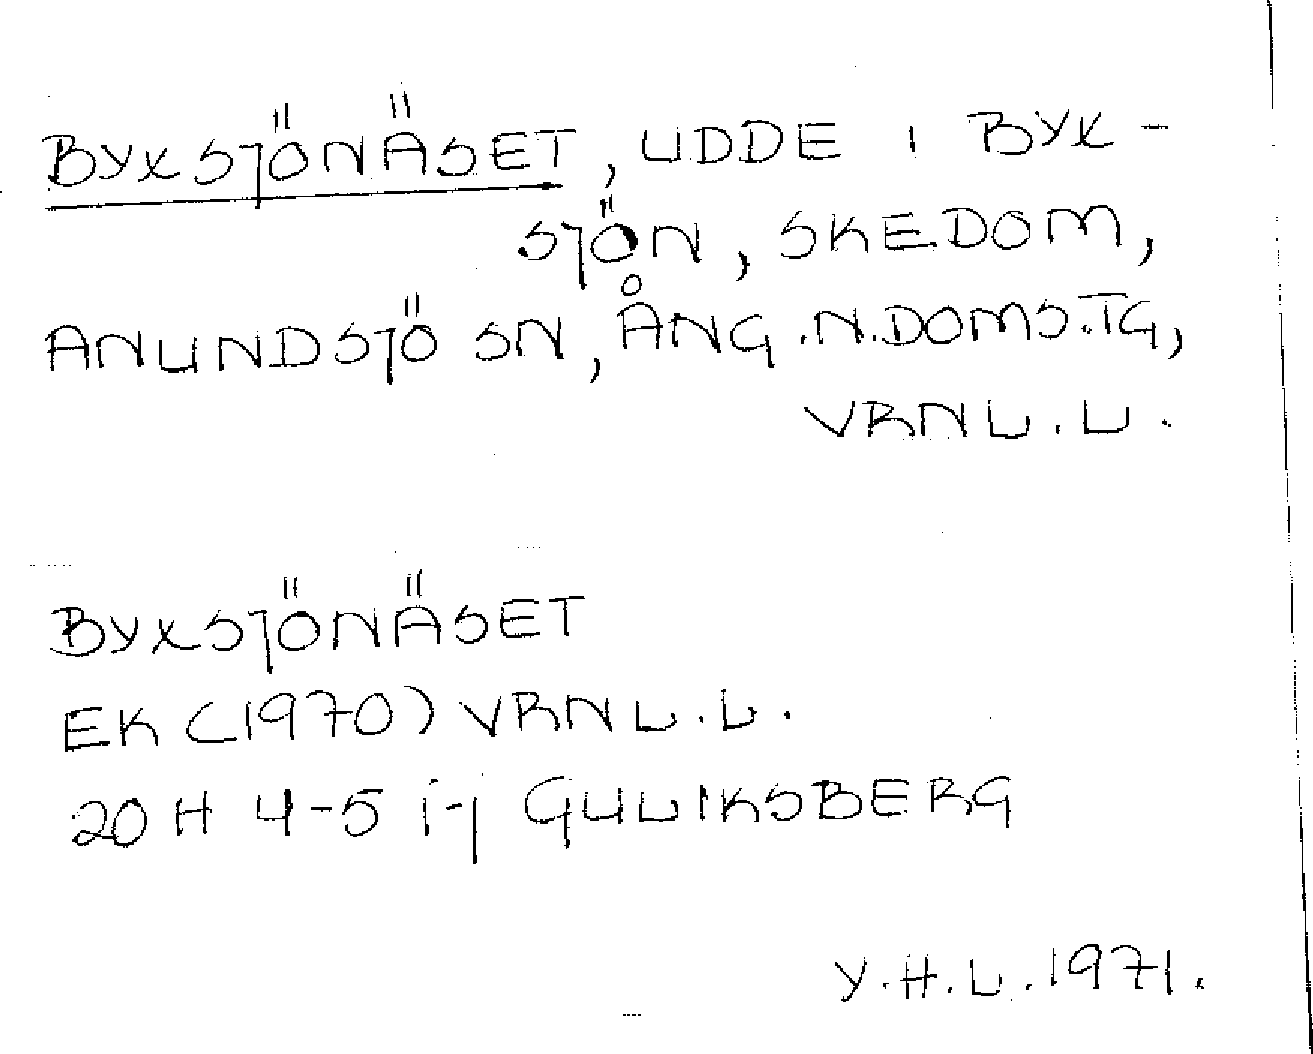 BYXSJÖNÄSET, UDDE I BYX-
SJÖN, SKEDOM,
ANUNDSJÖ SN, ÅNG.N.DOMS.TG,
VRNL.L.
BYXSJÖNÄSET
EK (1970) VRNL.L.
20 H 4-5 i-j GULLIKSBERG
Y.H.L.1971.